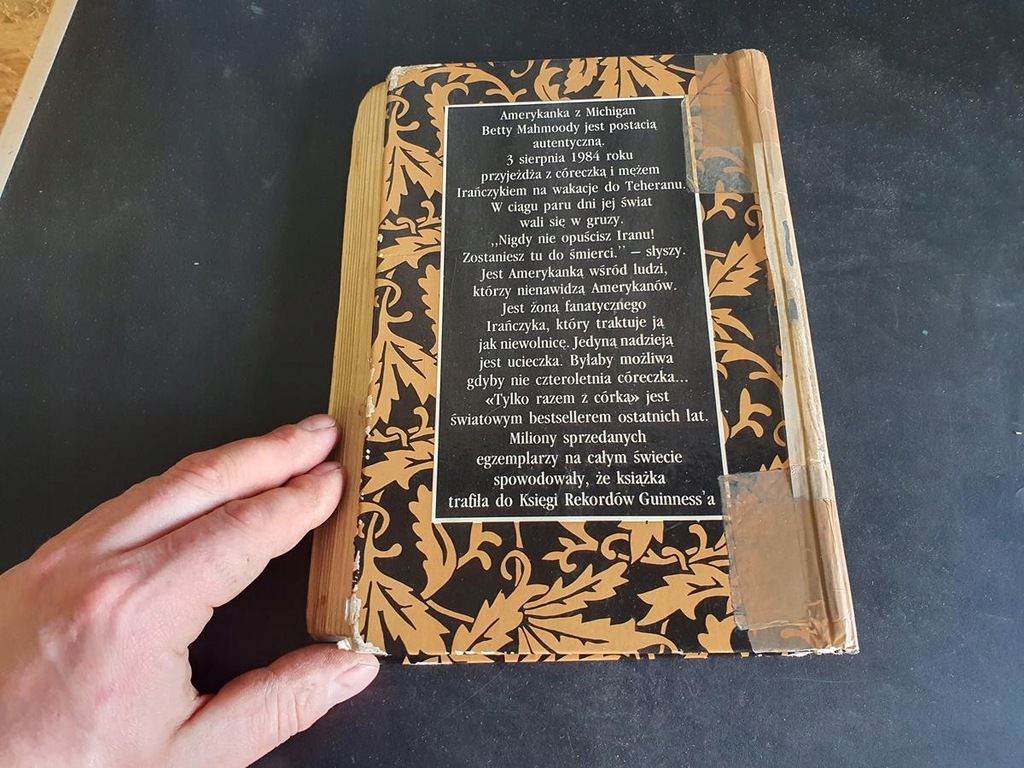 Amerykanka z Michigan
Betty Mahmoody jest postacią
autentyczną.
3 sierpnia 1984 roku
przyjeżdża z córeczką i mężem
Irańczykiem na wakacje do Teheranu.
W ciągu paru dni jej świat
wali się w gruzy.
,,Nigdy nie opuścisz Iranu!
Zostaniesz tu do śmierci.” — słyszy.
Jest Amerykanką wśród ludzi,
którzy nienawidzą Amerykanów.
Jest żoną fanatycznego
Irańczyka, który traktuje ją
jak niewolnicę. Jedyną nadzieją
jest ucieczka. Byłaby możliwa
gdyby nie czteroletnia córeczka...
«Tylko razem z córką» jest
światowym bestsellerem ostatnich lat.
Miliony sprzedanych
egzemplarzy na całym świecie
spowodowały, że książka
trafiła do Księgi Rekordów Guinness'a